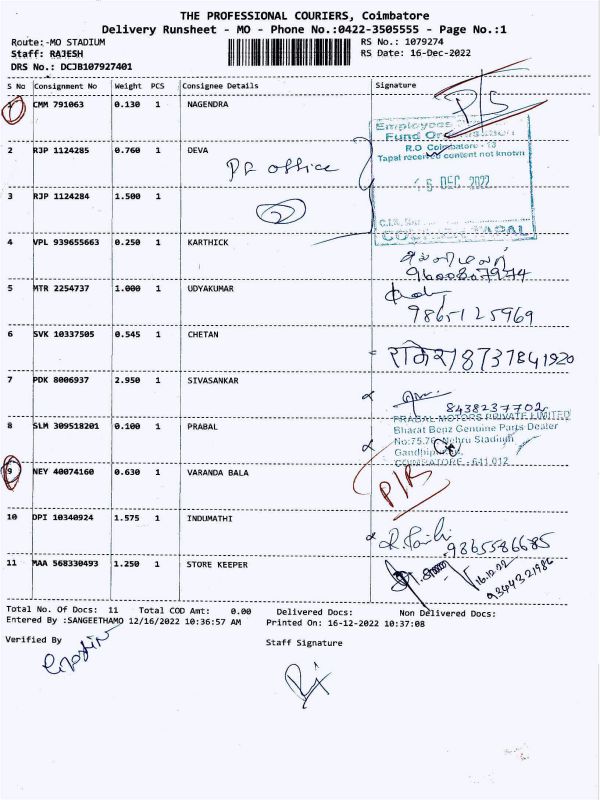 THE PROFESSIONAL COURIERS, Coimbatore
Delivery Runsheet - MO - Phone No.:0422-3505555 - Page No.:1
Route:-MO STADIUM RS No.: 1079274
Staff: RAJESH RS Date: 16-Dec-2022
DRS No.: DCJB107927401
S No Consignment No Weight PCS Consignee Details Signature
1 CMM 791063 0.130 1 NAGENDRA
Employees
Fund
R.O Coimbatore - 18
Tapal received content not known
2 RJP 1124285 0.760 1 DEVA
PF office
DEC 2022
3 RJP 1124284 1.500 1
2
COUNTER TAPAL
4 VPL 939655663 0.250 1 KARTHICK
9600807974
5 MTR 2254737 1.000 1 UDYAKUMAR
9865125969
6 SVK 10337505 0.545 1 CHETAN
8737841920
7 PDK 8006937 2.950 1 SIVASANKAR
8438237702
8 SLM 309518201 0.100 1 PRABAL
PRABAL MOTORS PRIVATE LIMITED
Bharat Benz Genuine Parts Dealer
No:75,76, Nehru Stadium
COIMBATORE - 641 012
9 NEY 40074160 0.630 1 VARANDA BALA
10 DPI 10340924 1.575 1 INDUMATHI
9865586685
11 MAA 568330493 1.250 1 STORE KEEPER
16.12.22
9344321986
Total No. Of Docs: 11 Total COD Amt: 0.00 Delivered Docs: Non Delivered Docs:
Entered By :SANGEETHAMO 12/16/2022 10:36:57 AM Printed On: 16-12-2022 10:37:08
Verified By Staff Signature